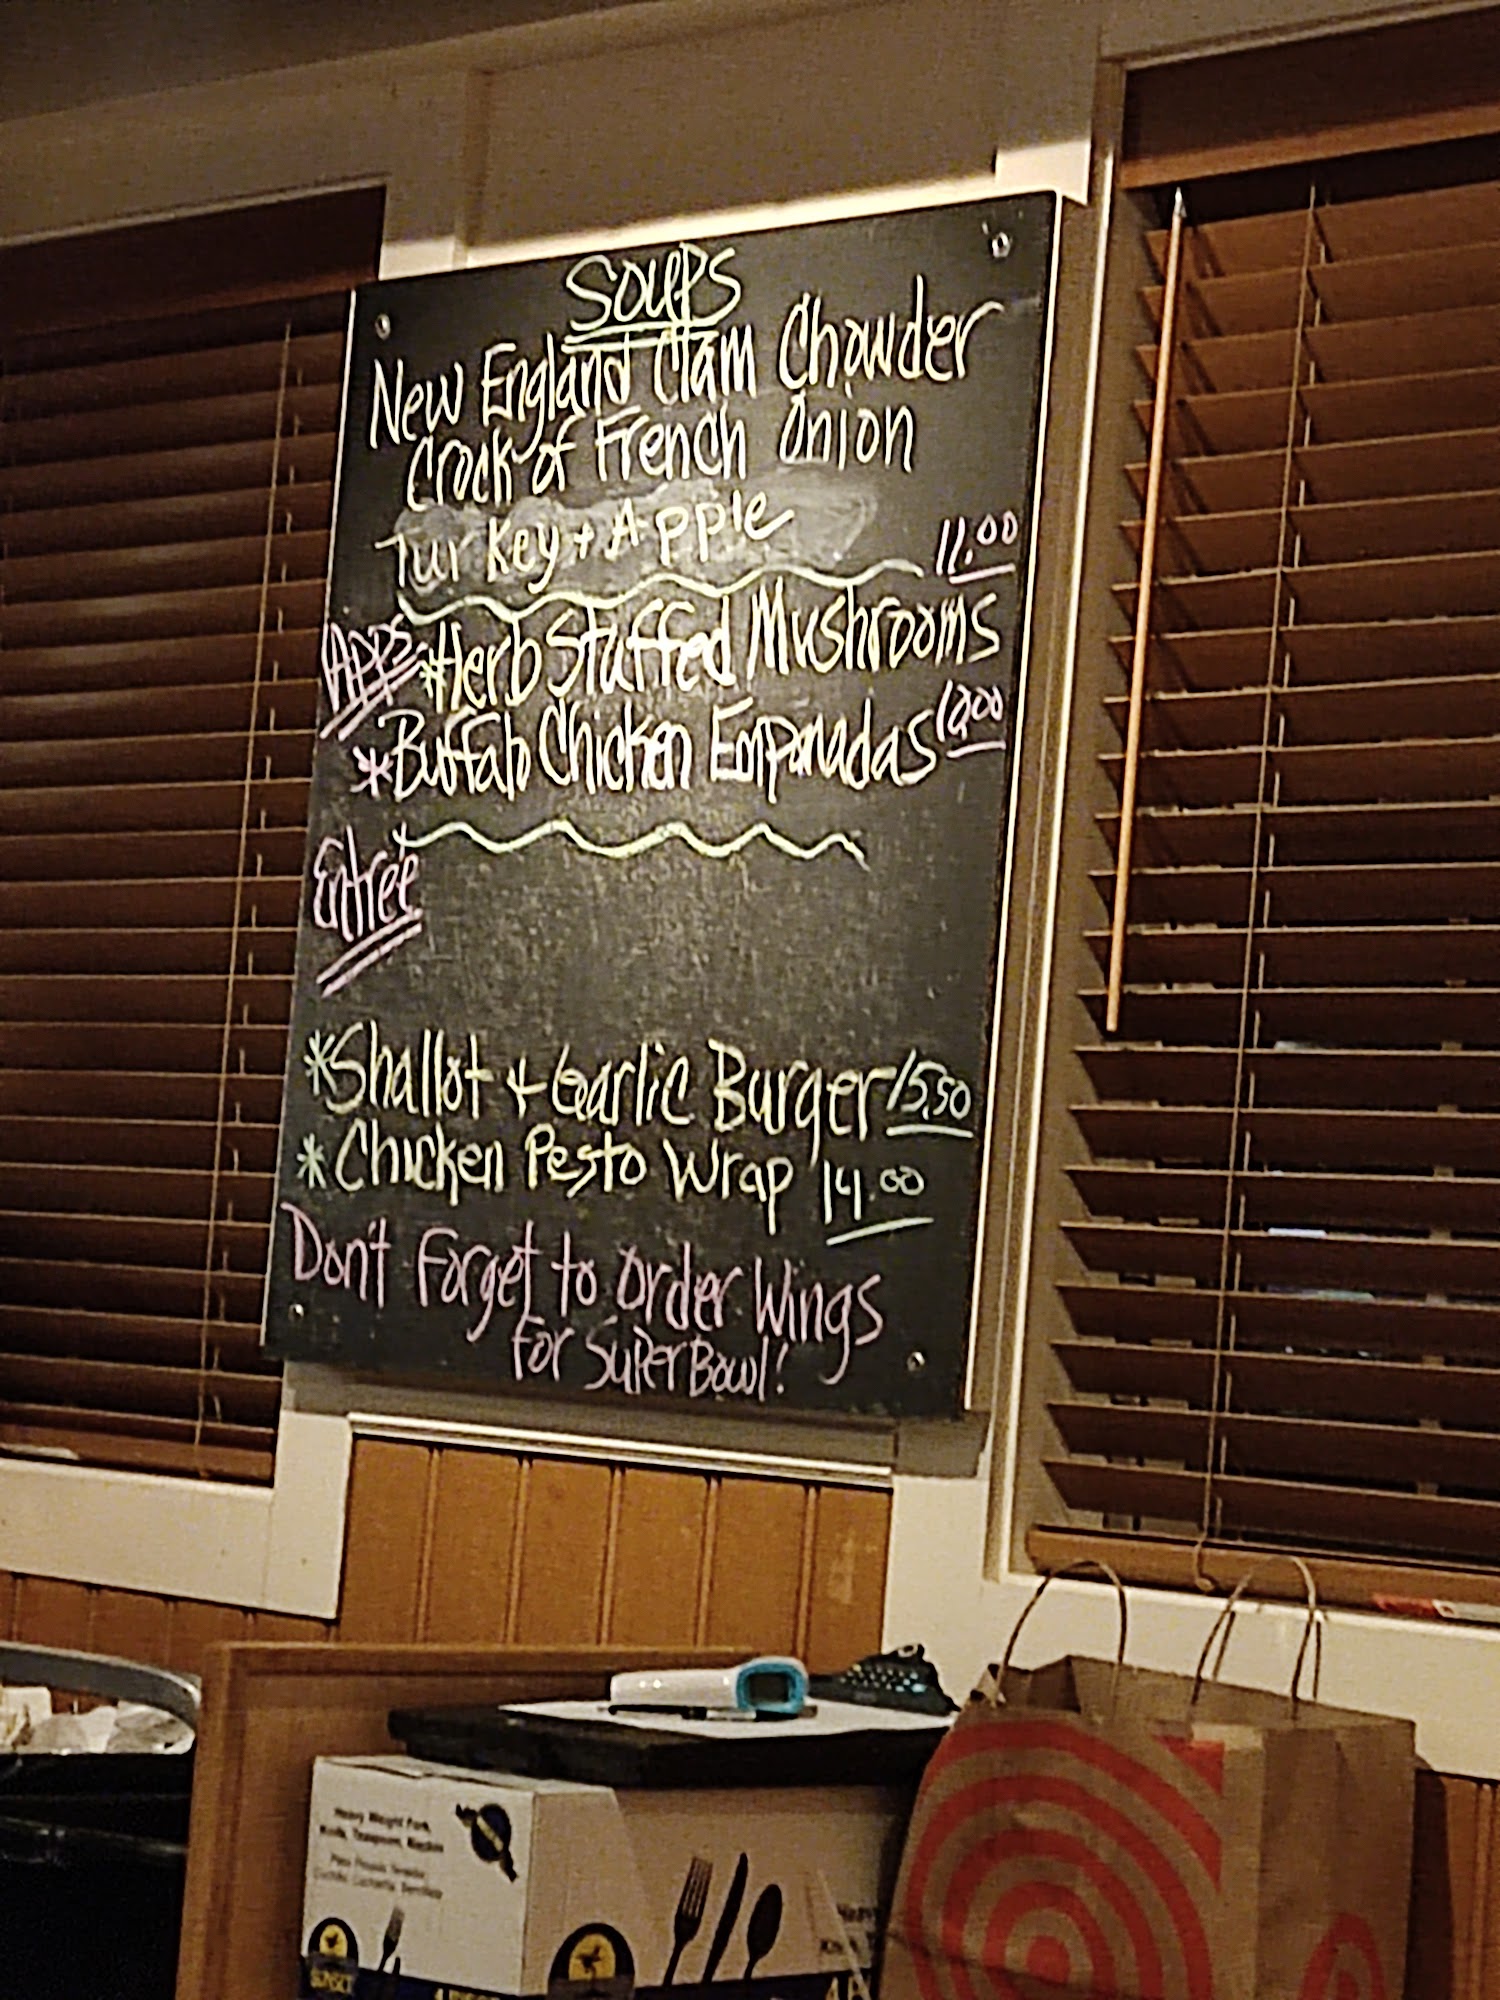 Soups
New England Clam Chowder
Crock of French Onion
Turkey + Apple
11.00
Apps *Herb Stuffed Mushrooms
*Buffalo Chicken Empanadas 10.00
Entrée
*Shallot + Garlic Burger 15.50
*Chicken Pesto Wrap 14.00
Don't Forget to Order Wings
For Super Bowl!
Heavy Weight Fork,
Knife, Teaspoon, Napkin
SUNSET